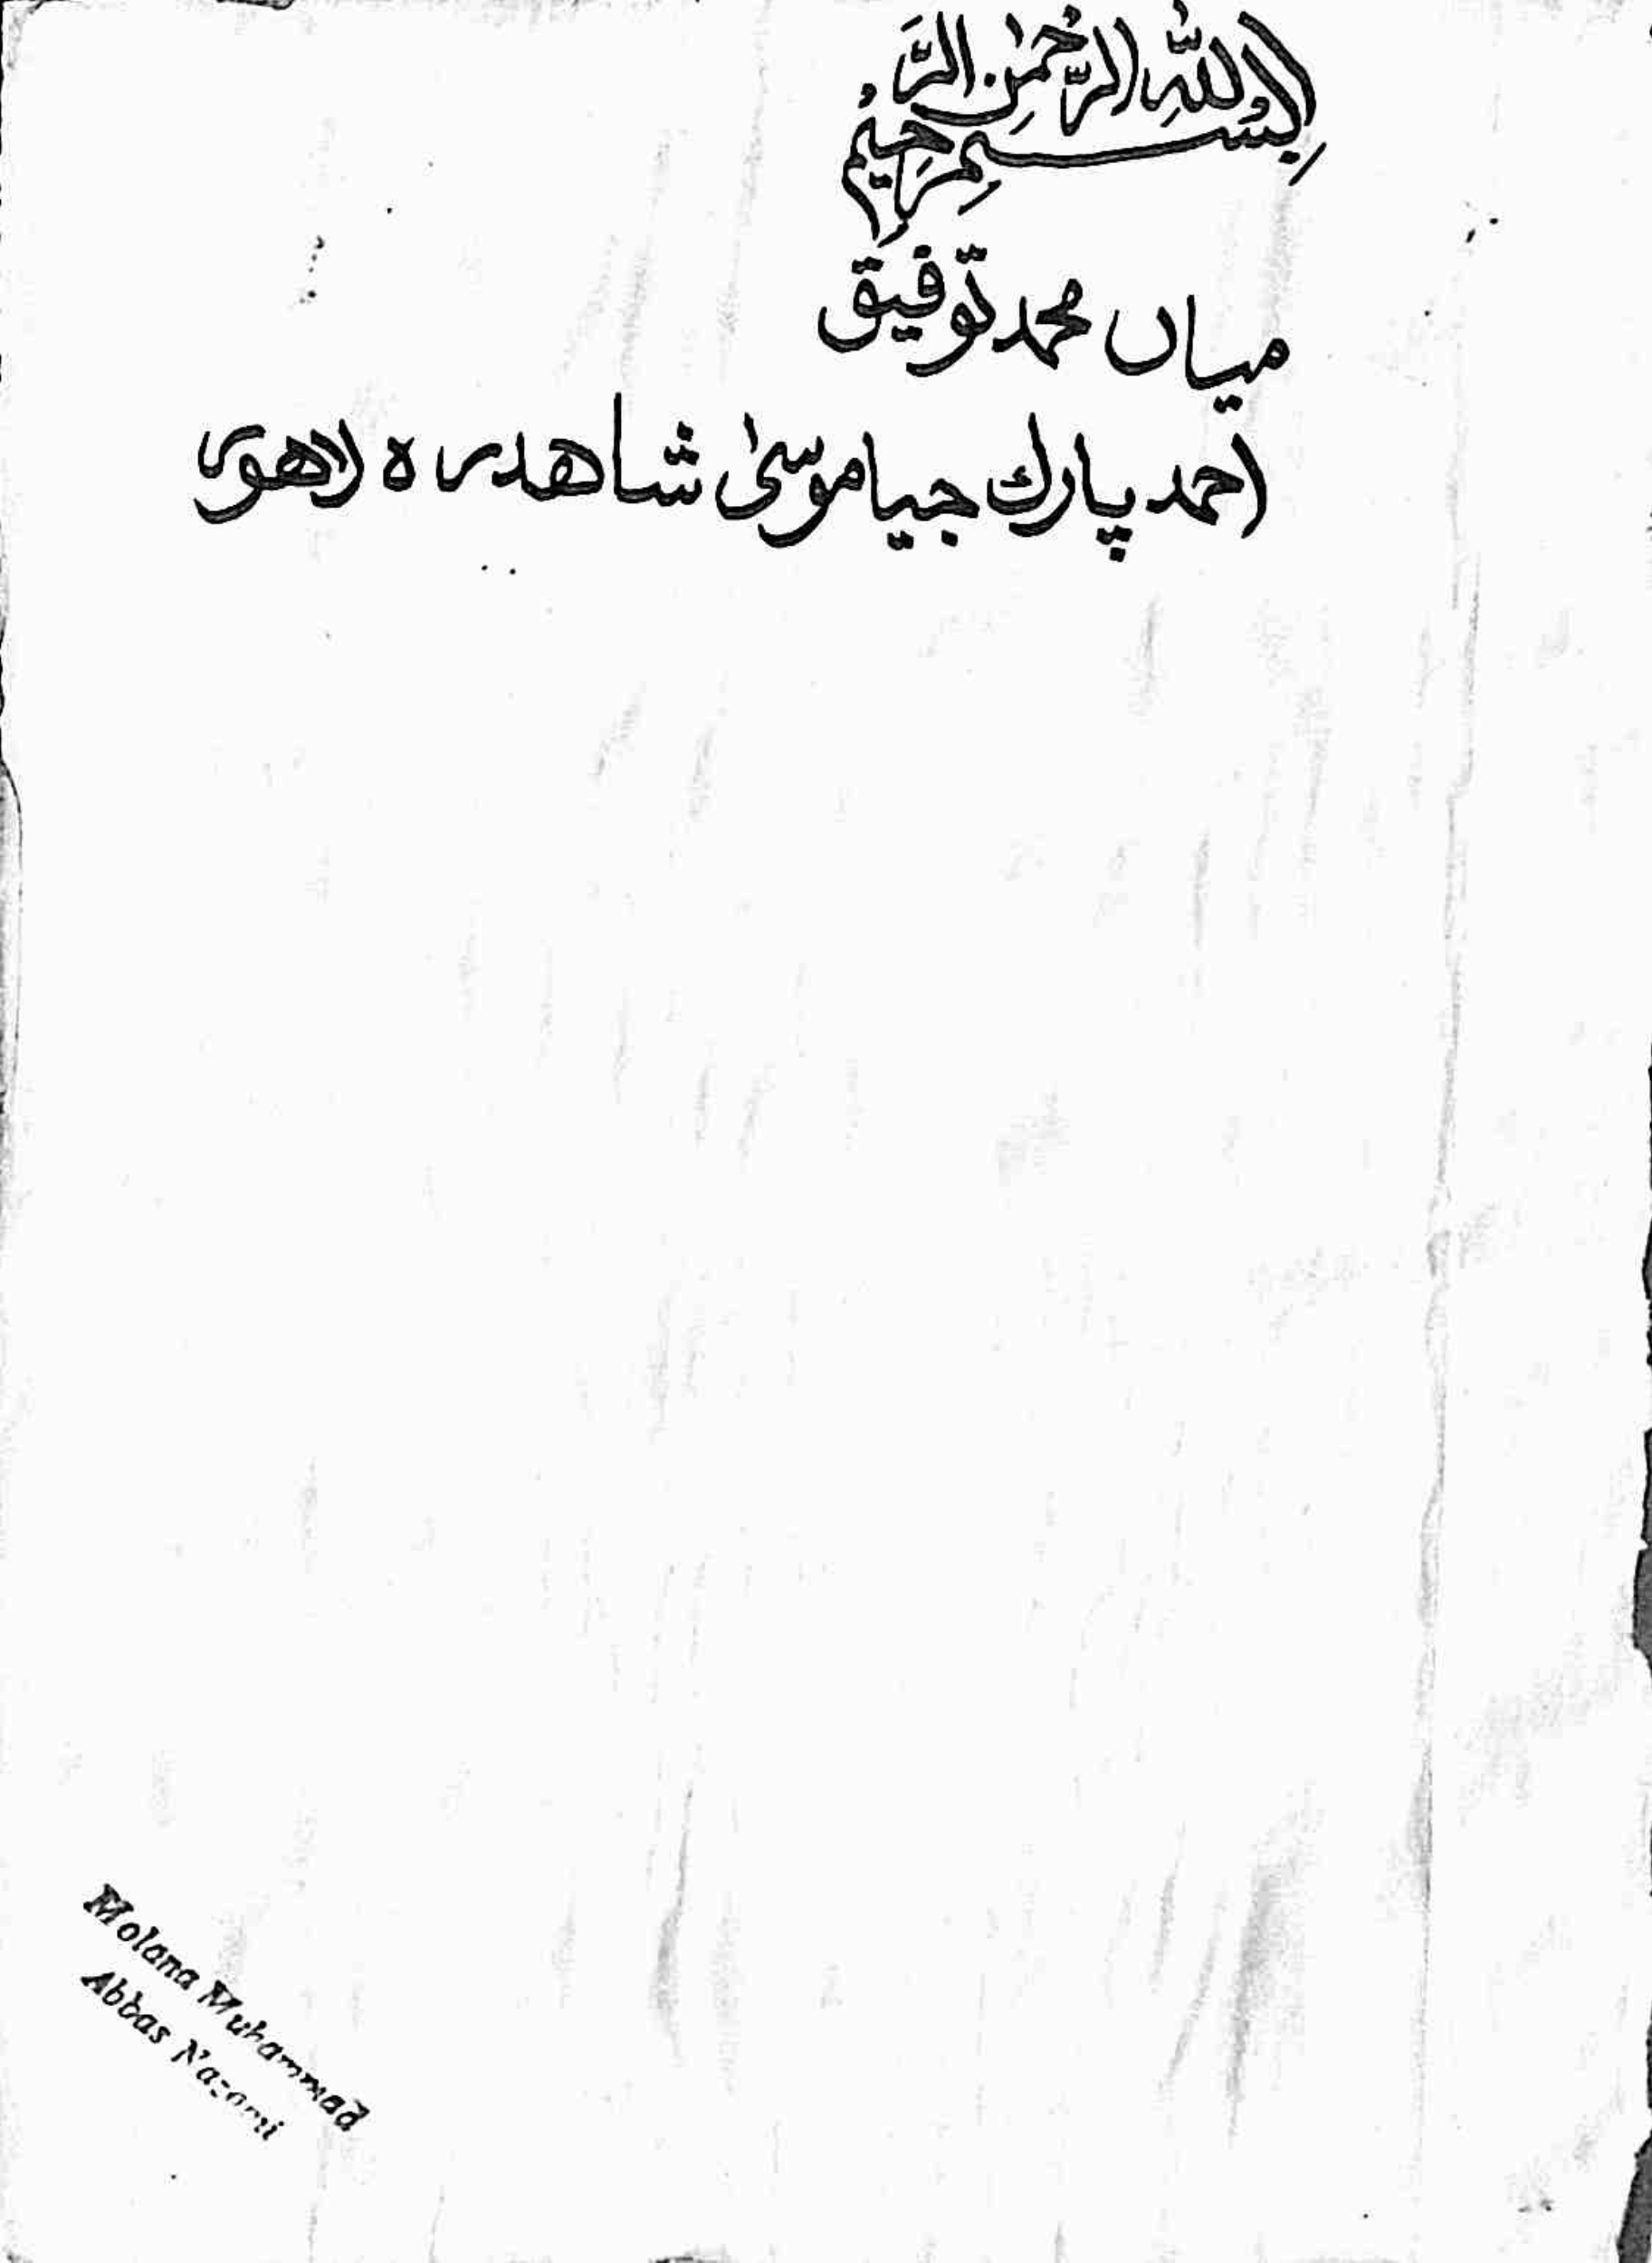 بِسْمِ اللّٰهِ الرَّحْمٰنِ الرَّحِيْمِ
میاں محمد توفیق
احمد پارک جیاموسیٰ شاھدرہ لاھور
Molana Muhammad
Abbas Nazami